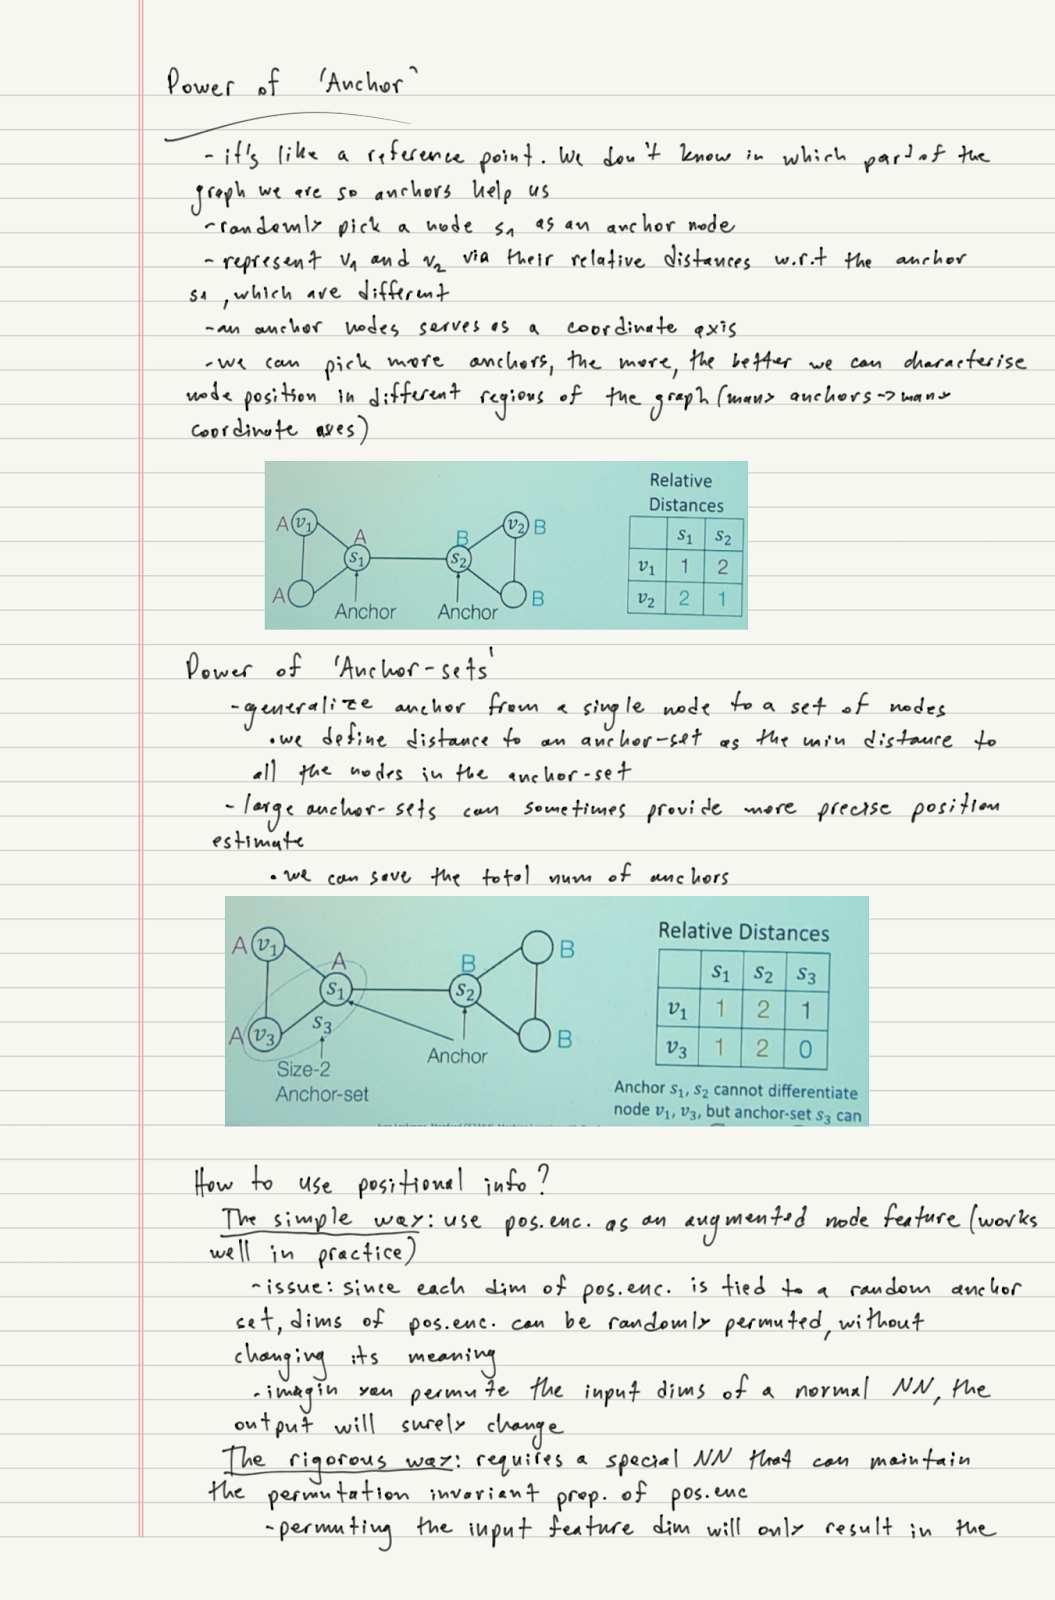 Power of 'Anchor'
- it's like a reference point. We don't know in which part of the
graph we are so anchors help us
- randomly pick a node s1 as an anchor node
- represent v1 and v2 via their relative distances w.r.t the anchor
s1, which are different
- an anchor nodes serves as a coordinate axis
- we can pick more anchors, the more, the better we can characterise
node position in different regions of the graph (many anchors -> many
coordinate axes)
Relative
Distances
A v1 A B v2 B
s1 s2
s1 s2
v1 1 2
v2 2 1
A B
Anchor Anchor
Power of 'Anchor-sets'
- generalize anchor from a single node to a set of nodes
• we define distance to an anchor-set as the min distance to
all the nodes in the anchor-set
- large anchor-sets can sometimes provide more precise position
estimate
• we can save the total num of anchors
Relative Distances
A v1 A B B
s1 s2
s1 s2 s3
v1 1 2 1
v3 1 2 0
A v3 s3 B
Anchor
Size-2
Anchor-set
Anchor s1, s2 cannot differentiate
node v1, v3, but anchor-set s3 can
How to use positional info?
The simple way: use pos.enc. as an augmented node feature (works
well in practice)
- issue: since each dim of pos.enc. is tied to a random anchor
set, dims of pos.enc. can be randomly permuted, without
changing its meaning
- imagin you permute the input dims of a normal NN, the
output will surely change
The rigorous way: requires a special NN that can maintain
the permutation invariant prop. of pos.enc
- permuting the input feature dim will only result in the